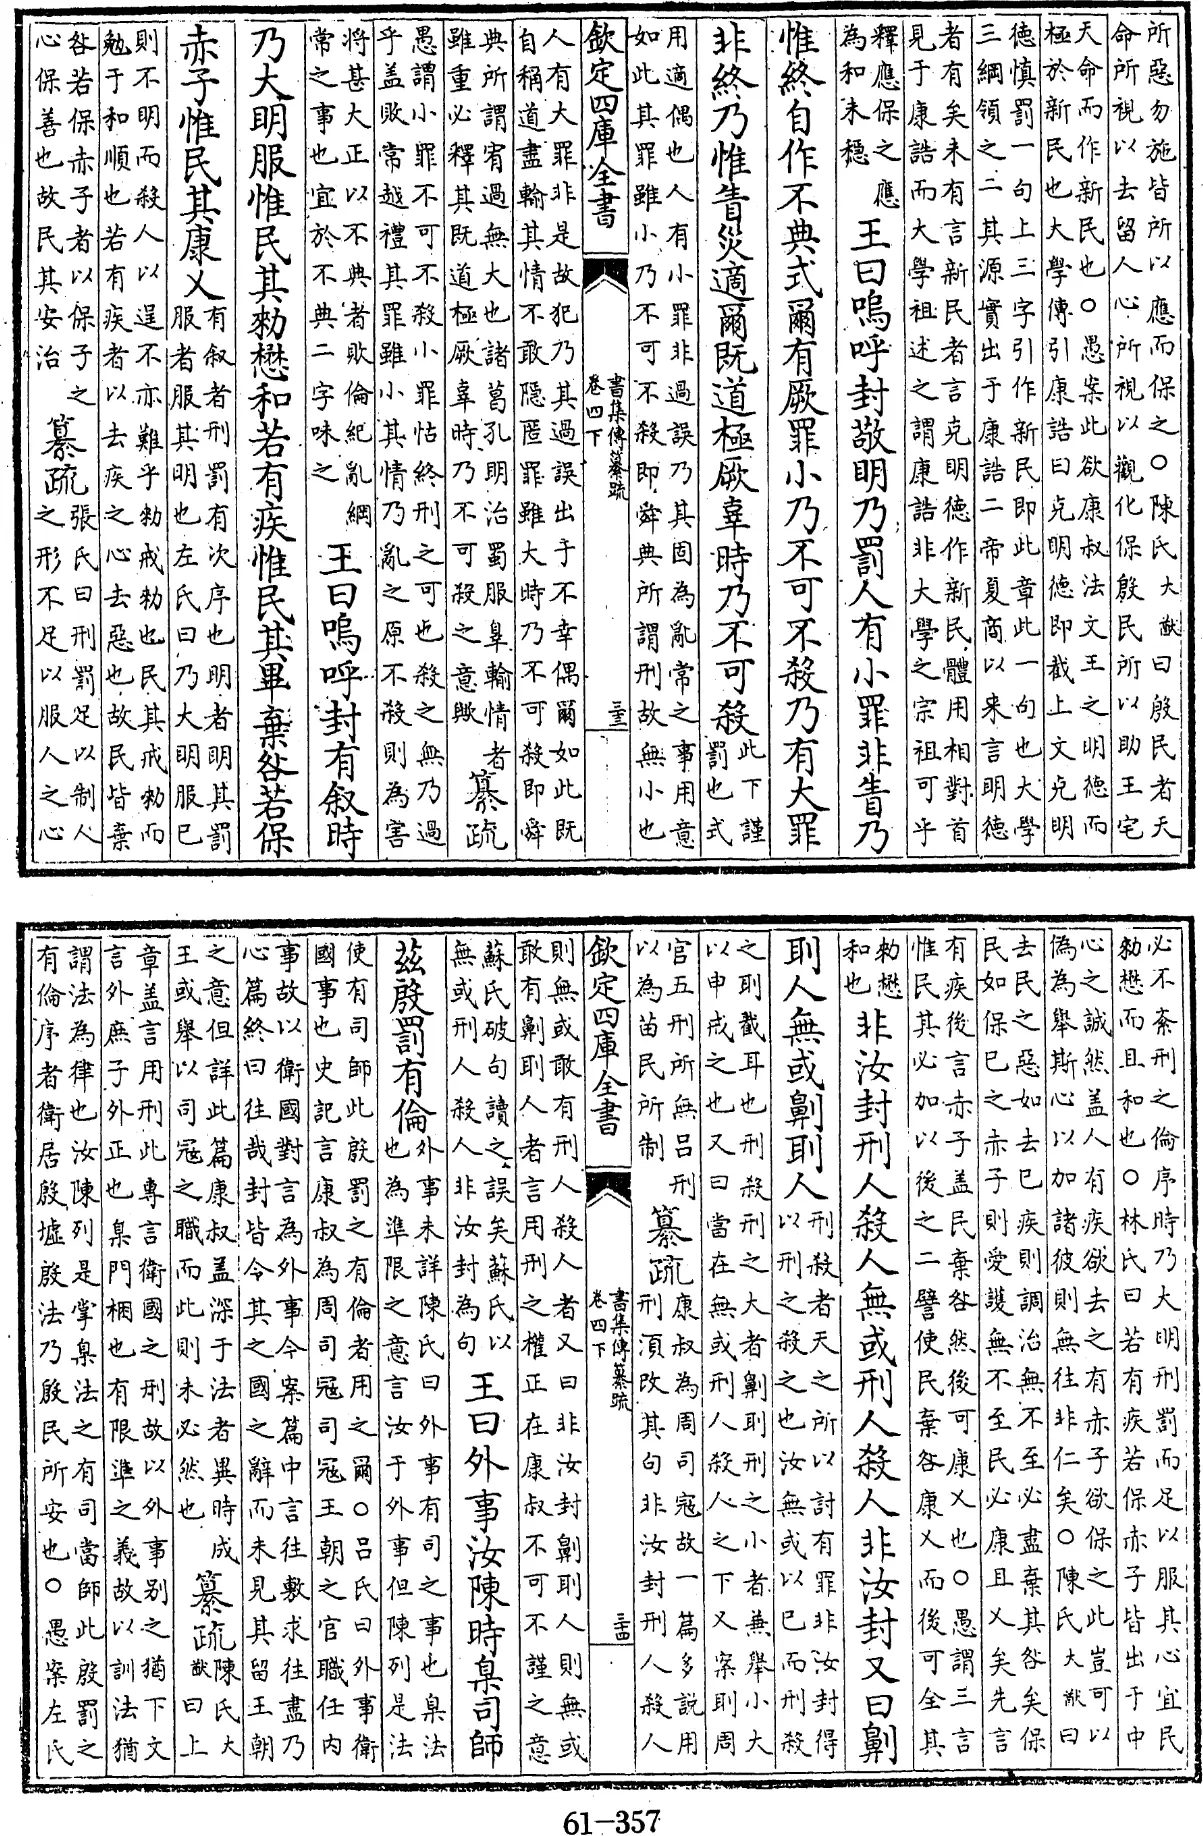 所惡勿施皆所以應而保之○陳氏大猷曰殷民者天
命所視以去留人心所視以觀化保殷民所以助王宅
天命而作新民也○愚案此欲康叔法文王之明德而
極於新民也大學傳引康誥曰克明德即截上文克明
德慎罰一句上三字引作新民即此章此一句也大學
三綱領之二其源實出于康誥二帝夏商以来言明德
者有矣未有言新民者言克明德作新民體用相對首
見于康誥而大學祖述之謂康誥非大學之宗祖可乎
釋應保之應
為和未穏
王曰嗚呼封敬明乃罰人有小罪非眚乃
惟終自作不典式爾有厥罪小乃不可不殺乃有大罪
非終乃惟眚災適爾既道極厥辜時乃不可殺
此下謹
罰也式
用適偶也人有小罪非過誤乃其固為亂常之事用意
如此其罪雖小乃不可不殺即舜典所謂刑故無小也
欽定四庫全書
書集傳纂疏
卷四下
三十三
人有大罪非是故犯乃其過誤出于不幸偶爾如此既
自稱道盡輸其情不敢隱匿罪雖大時乃不可殺即舜
典所謂宥過無大也諸葛孔明治蜀服辠輸情者
雖重必釋其既道極厥辜時乃不可殺之意歟
纂疏
愚謂小罪不可不殺小罪怙終刑之可也殺之無乃過
乎盖敗常越禮其罪雖小其情乃亂之原不殺則為害
將甚大正以不典者敗倫紀亂綱
常之事也宜於不典二字味之
王曰嗚呼封有叙時
乃大明服惟民其勑懋和若有疾惟民其畢棄咎若保
赤子惟民其康乂
有叙者刑罰有次序也明者明其罰
服者服其明也左氏曰乃大明服已
則不明而殺人以逞不亦難乎勑戒勑也民其戒勑而
勉于和順也若有疾者以去疾之心去惡也故民皆棄
咎若保赤子者以保子之
心保善也故民其安治
纂疏
張氏曰刑罰足以制人
之形不足以服人之心
必不紊刑之倫序時乃大明刑罰而足以服其心宜民
勑懋而且和也○林氏曰若有疾若保赤子皆出于中
心之誠然盖人有疾欲去之有赤子欲保之此豈可以
偽為舉斯心以加諸彼則無往非仁矣○陳氏大猷曰
去民之惡如去已疾則調治無不至必盡棄其咎矣保
民如保已之赤子則愛護無不至民必康且乂矣先言
有疾後言赤子盖民棄咎然後可康乂也○愚謂三言
惟民其必加以後之二譬使民棄咎康乂而後可全其
勑懋
和也
非汝封刑人殺人無或刑人殺人非汝封又曰劓
刵人無或劓刵人
刑殺者天之所以討有罪非汝封得
以刑之殺之也汝無或以已而刑殺
之刵截耳也刑殺刑之大者劓刵刑之小者兼舉小大
以申戒之也又曰當在無或刑人殺人之下又案刵周
官五刑所無吕刑
以為苗民所制
纂疏
康叔為周司寇故一篇多説用
刑須改其句非汝封刑人殺人
欽定四庫全書
書集傳纂疏
卷四下
三十四
則無或敢有刑人殺人者又曰非汝封劓刵人則無或
敢有劓刵人者言用刑之權正在康叔不可不謹之意
蘇氏破句讀之誤矣蘇氏以
無或刑人殺人非汝封為句
王曰外事汝陳時臬司師
茲殷罰有倫
外事未詳陳氏曰外事有司之事也臬法
也為準限之意言汝于外事但陳列是法
使有司師此殷罰之有倫者用之爾○吕氏曰外事衛
國事也史記言康叔為周司寇司寇王朝之官職任内
事故以衛國對言為外事今案篇中言往敷求往盡乃
心篇終曰往哉封皆令其之國之辭而未見其留王朝
之意但詳此篇康叔盖深于法者異時成
王或舉以司寇之職而此則未必然也
纂疏
陳氏大
猷曰上
章盖言用刑此專言衛國之刑故以外事别之猶下文
言外庶子外正也臬門梱也有限準之義故以訓法猶
謂法為律也汝陳列是掌臬法之有司當師此殷罰之
有倫序者衛居殷墟殷法乃殷民所安也○愚案左氏
61-357